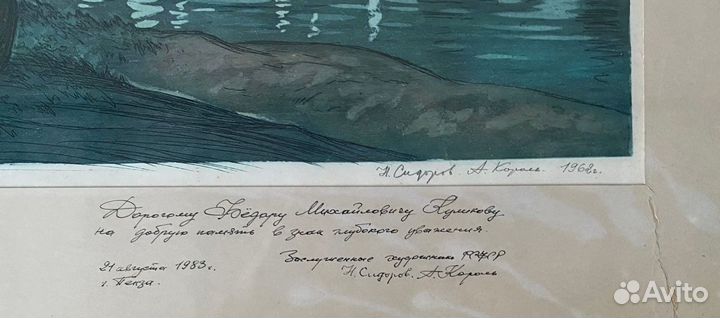 Н. Сидоров. А. Король. 1962г.
Дорогому Фёдору Михайловичу Куликову
на добрую память в знак глубокого уважения.
Заслуженные художники РСФСР
21 августа 1983г. Н. Сидоров. А. Король
г. Пенза.
Avito